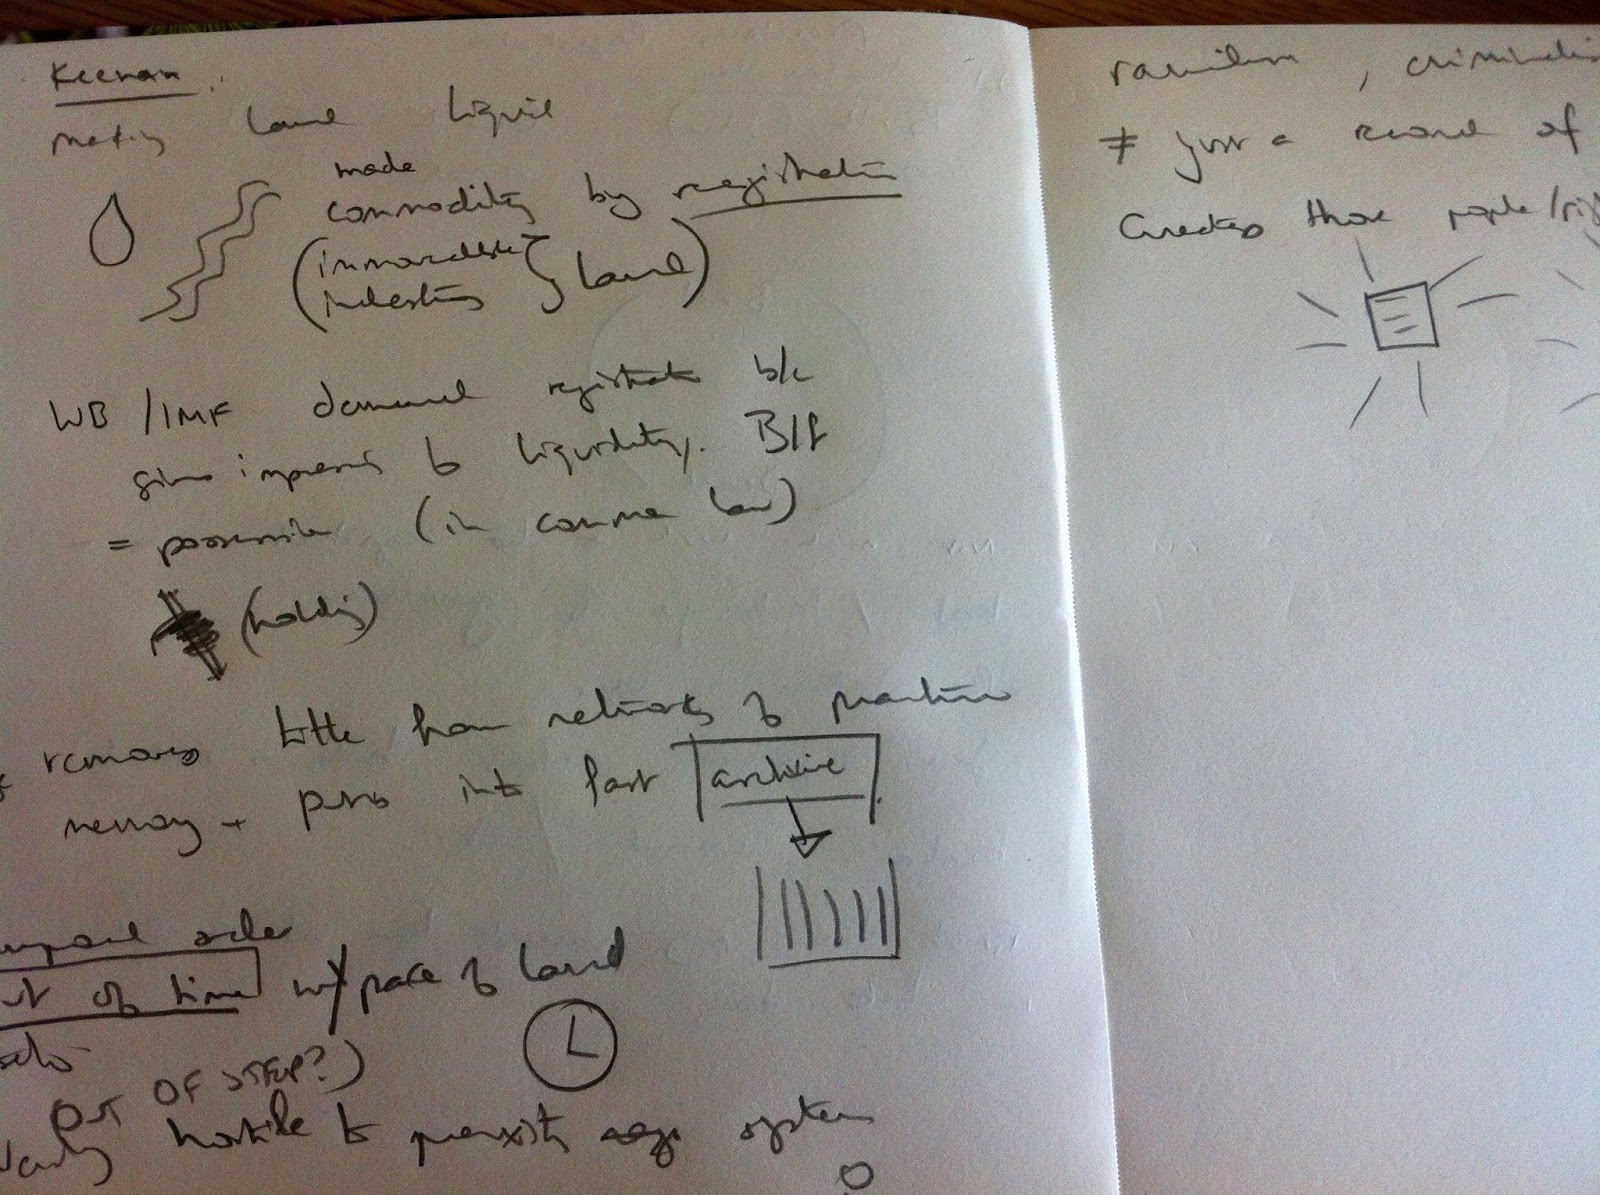 Keenan.
Making land liquid
made
commodity by registration
(immovable
industry } land)
WB/IMF demand registration b/c
gives impression of liquidity. B/f
= possession (in common law)
(holding)
removes title from networks of practice
memory + puts into fast archive
order
out of time w/ pace of land
OUT OF STEP?)
hostile to proximity systems
racialism, criminalis
≠ just a record of
Creates those people/rig